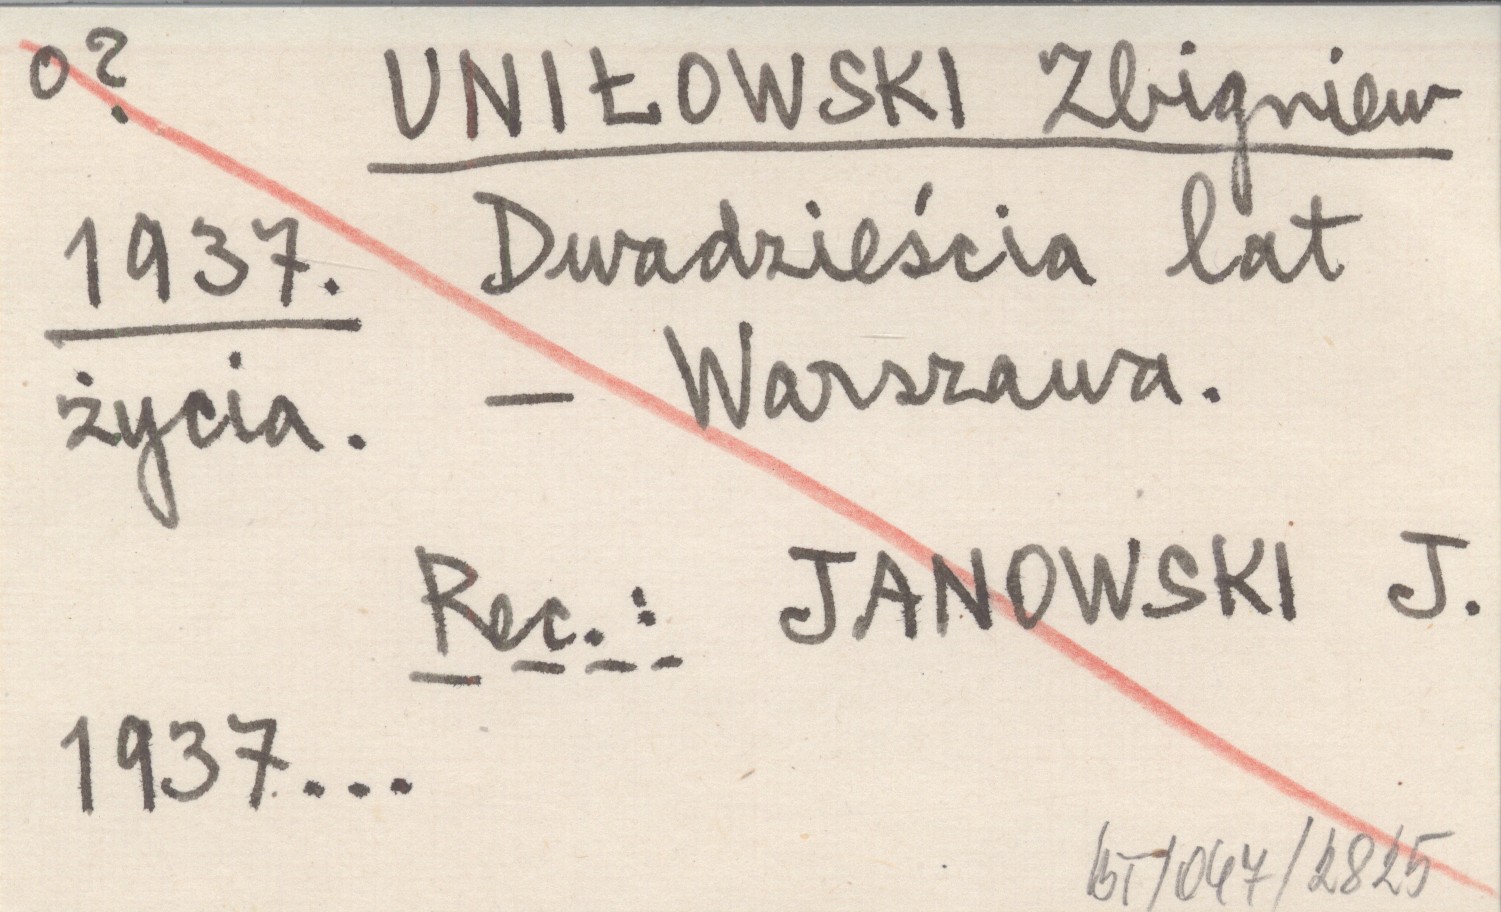 o? UNIŁOWSKI Zbigniew
1937. Dwadzieścia lat
życia. – Warszawa.
Rec.: JANOWSKI J.
1937...
/047/2825